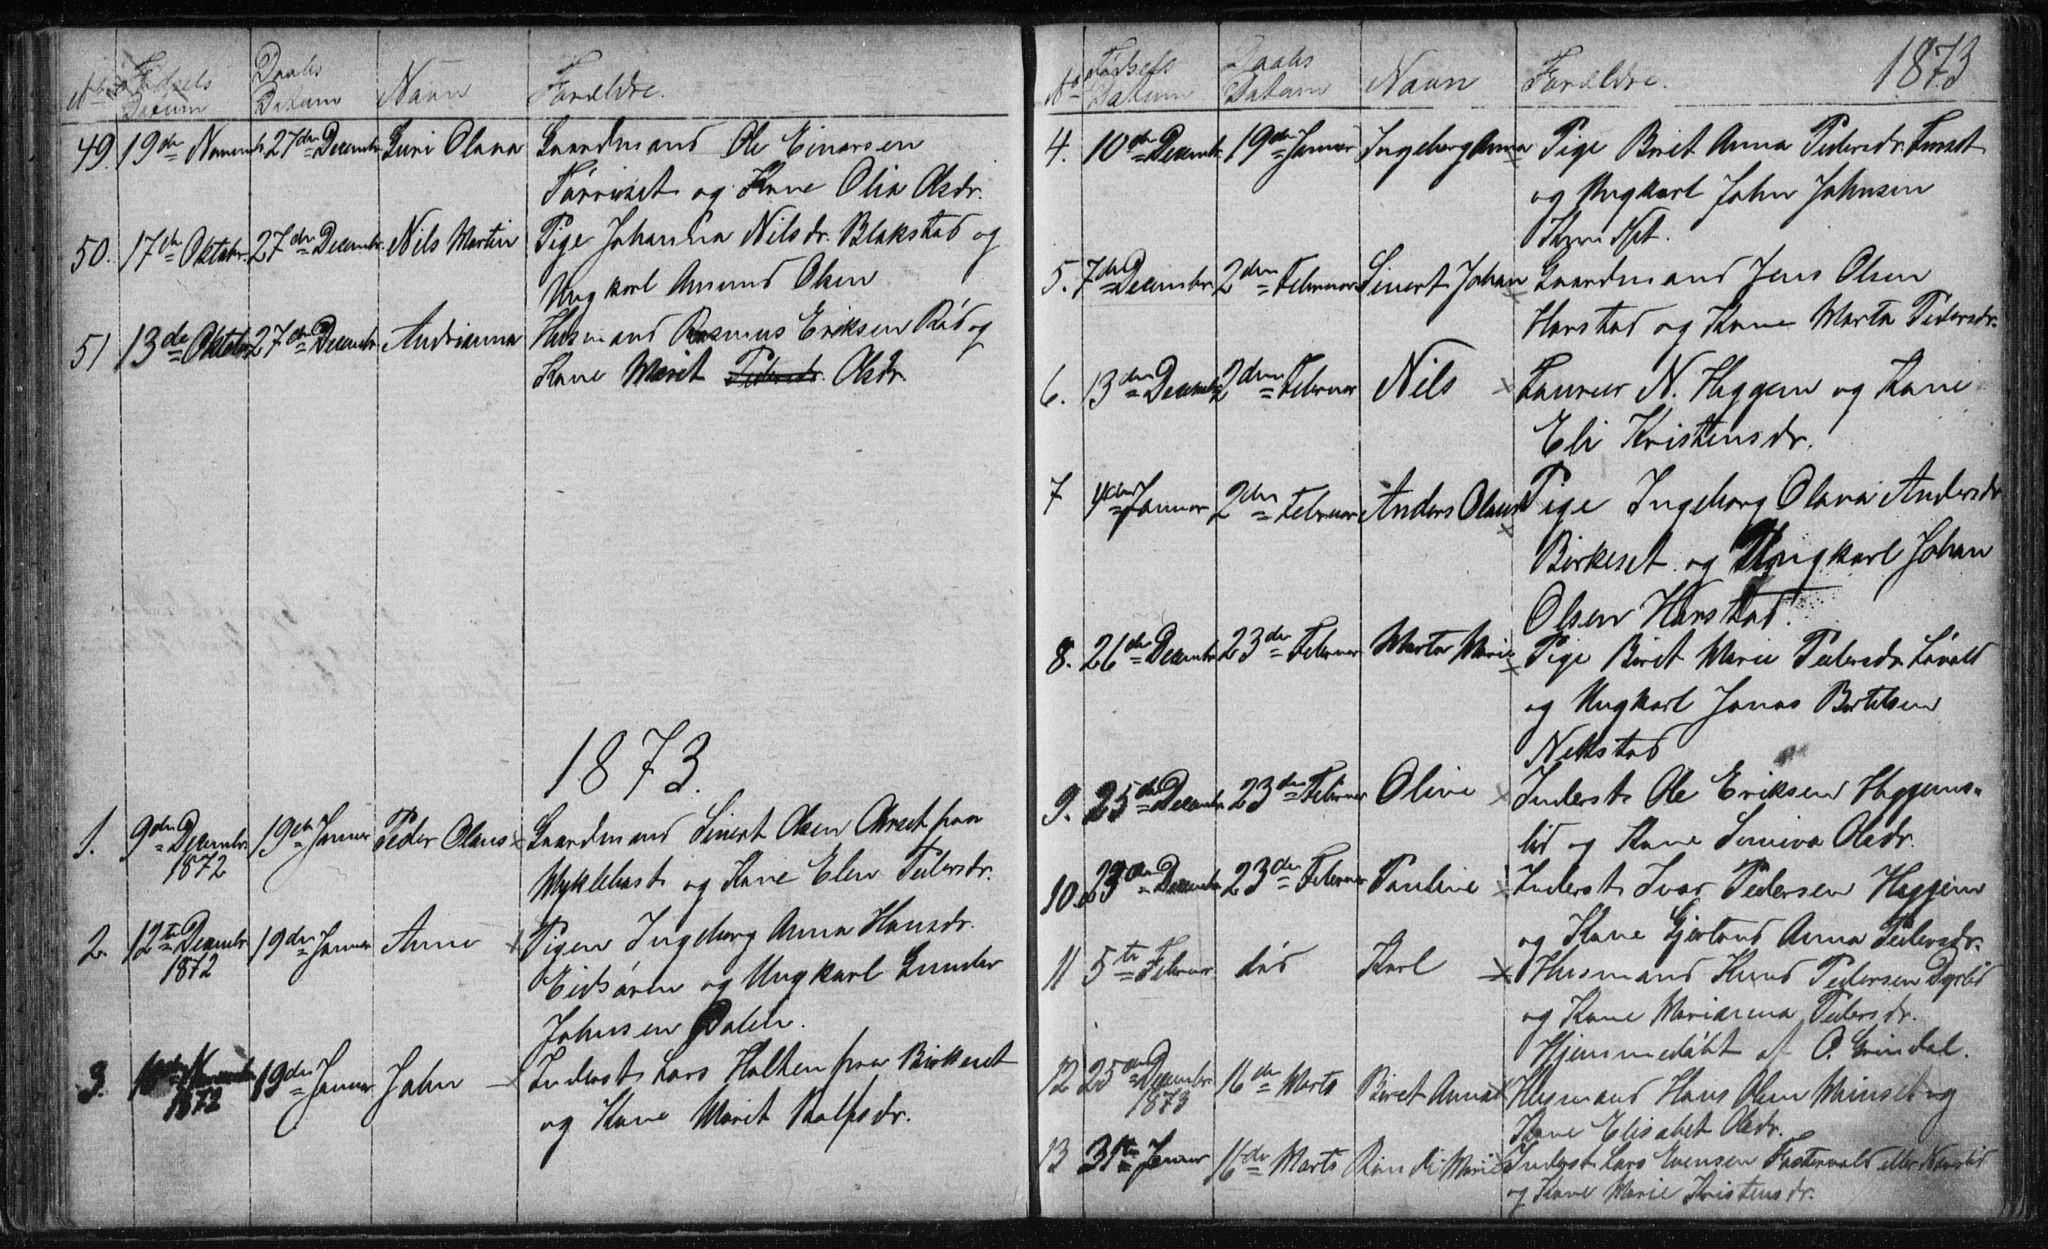 No Fødsels Datum Daabs Datum Navn Forældre.
49. 19de Novembr. 27de Decembr. Guri Olava Gaardmand Ole Einarsen
og Kone Olia Olsdr.
50. 17de Oktobr. 27de Decembr. Nils Martin Pige Johanna Nilsdr. Blakstad og
Ungkarl Amund Olsen
51 13de Oktobr 27de Decembr. Andrianna Husmand Rasmus Eriksen Rød og
Kone Marit Pedersdr. Olsdr.
1873.
1. 9de Decembr. 1872 19de Januar Peder Olaus x Gaardmand Sivert Olsen Aarset paa
Myklebust og Kone Elen Pedersdr.
2. 12te Decembr 1872 19de Januar Anne x Pigen Ingeborg Anna Hansdr.
Eidsøren og Ungkarl Gunder
Johnsen Dalen.
3. 1872 19de Januar John x Inderst Lars Holten paa Birkeset
og Kone Marit Rolfsdr.
No Fødsels Datum Daabs Datum Navn Forældre. 1873
4. 10de Decembr 19de Januar Ingeborg Anna x Pige Beret Anna Pedersdr.
og Ungkarl John Johnsen
5. 7de Decembr. 2den Februar Sivert Johan x Gaardmand Jens Olsen
Harstad og Kone Marta Pedersdr.
6. 13de Decembr 2den Februar Nils x Laurus N. Haggem og Kone
Eli Kristensdr.
7 4de Januar 2den Februar Anders Olaus x Pige Ingeborg Olava Andersdr
Birkeset og Ungkarl Johan
Olsen Harstad.
8. 26de Decembr. 23de Februar Marta Marie x Pige Beret Marie Pedersdr. Løvold
og Ungkarl Jonas Bertelsen
Nekstad
9. 25de Decembr. 23de Februar Olive x Inderst Ole Eriksen Haggems-
lid og Kone Siniva Olsdr.
10. 23de Decembr 23de Februar Pauline x Inderst Ivar Pedersen Haggem
og Kone Gjertrud Anna Pedersdr.
11 5te Februar død Karl x Husmand Knud Pedersen Dyrlid
og Kone Marianna Pedersdr.
Hjemmedøbt af O. Grindal.
12 25de Decembr. 1873 16de Marts Beret Anna x Husmand Hans Olsen og
Kone Elisabet Olsdr.
13 31te Januar 16de Marts Marie x Inderst Lars Evensen eller
og Kone Marie Kristensdr.